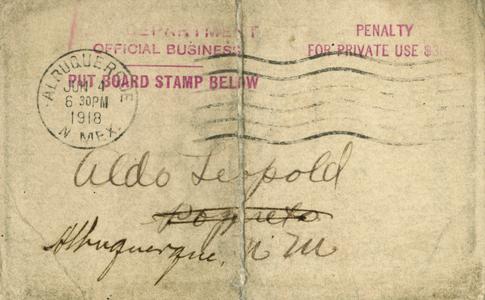 DEPARTMENT
OFFICIAL BUSINESS
PENALTY
FOR PRIVATE USE $3
PUT BOARD STAMP BELOW
ALBUQUERQUE
JUN 4
6 30PM
1918
N. MEX.
Aldo Leopold
Albuquerque, N M